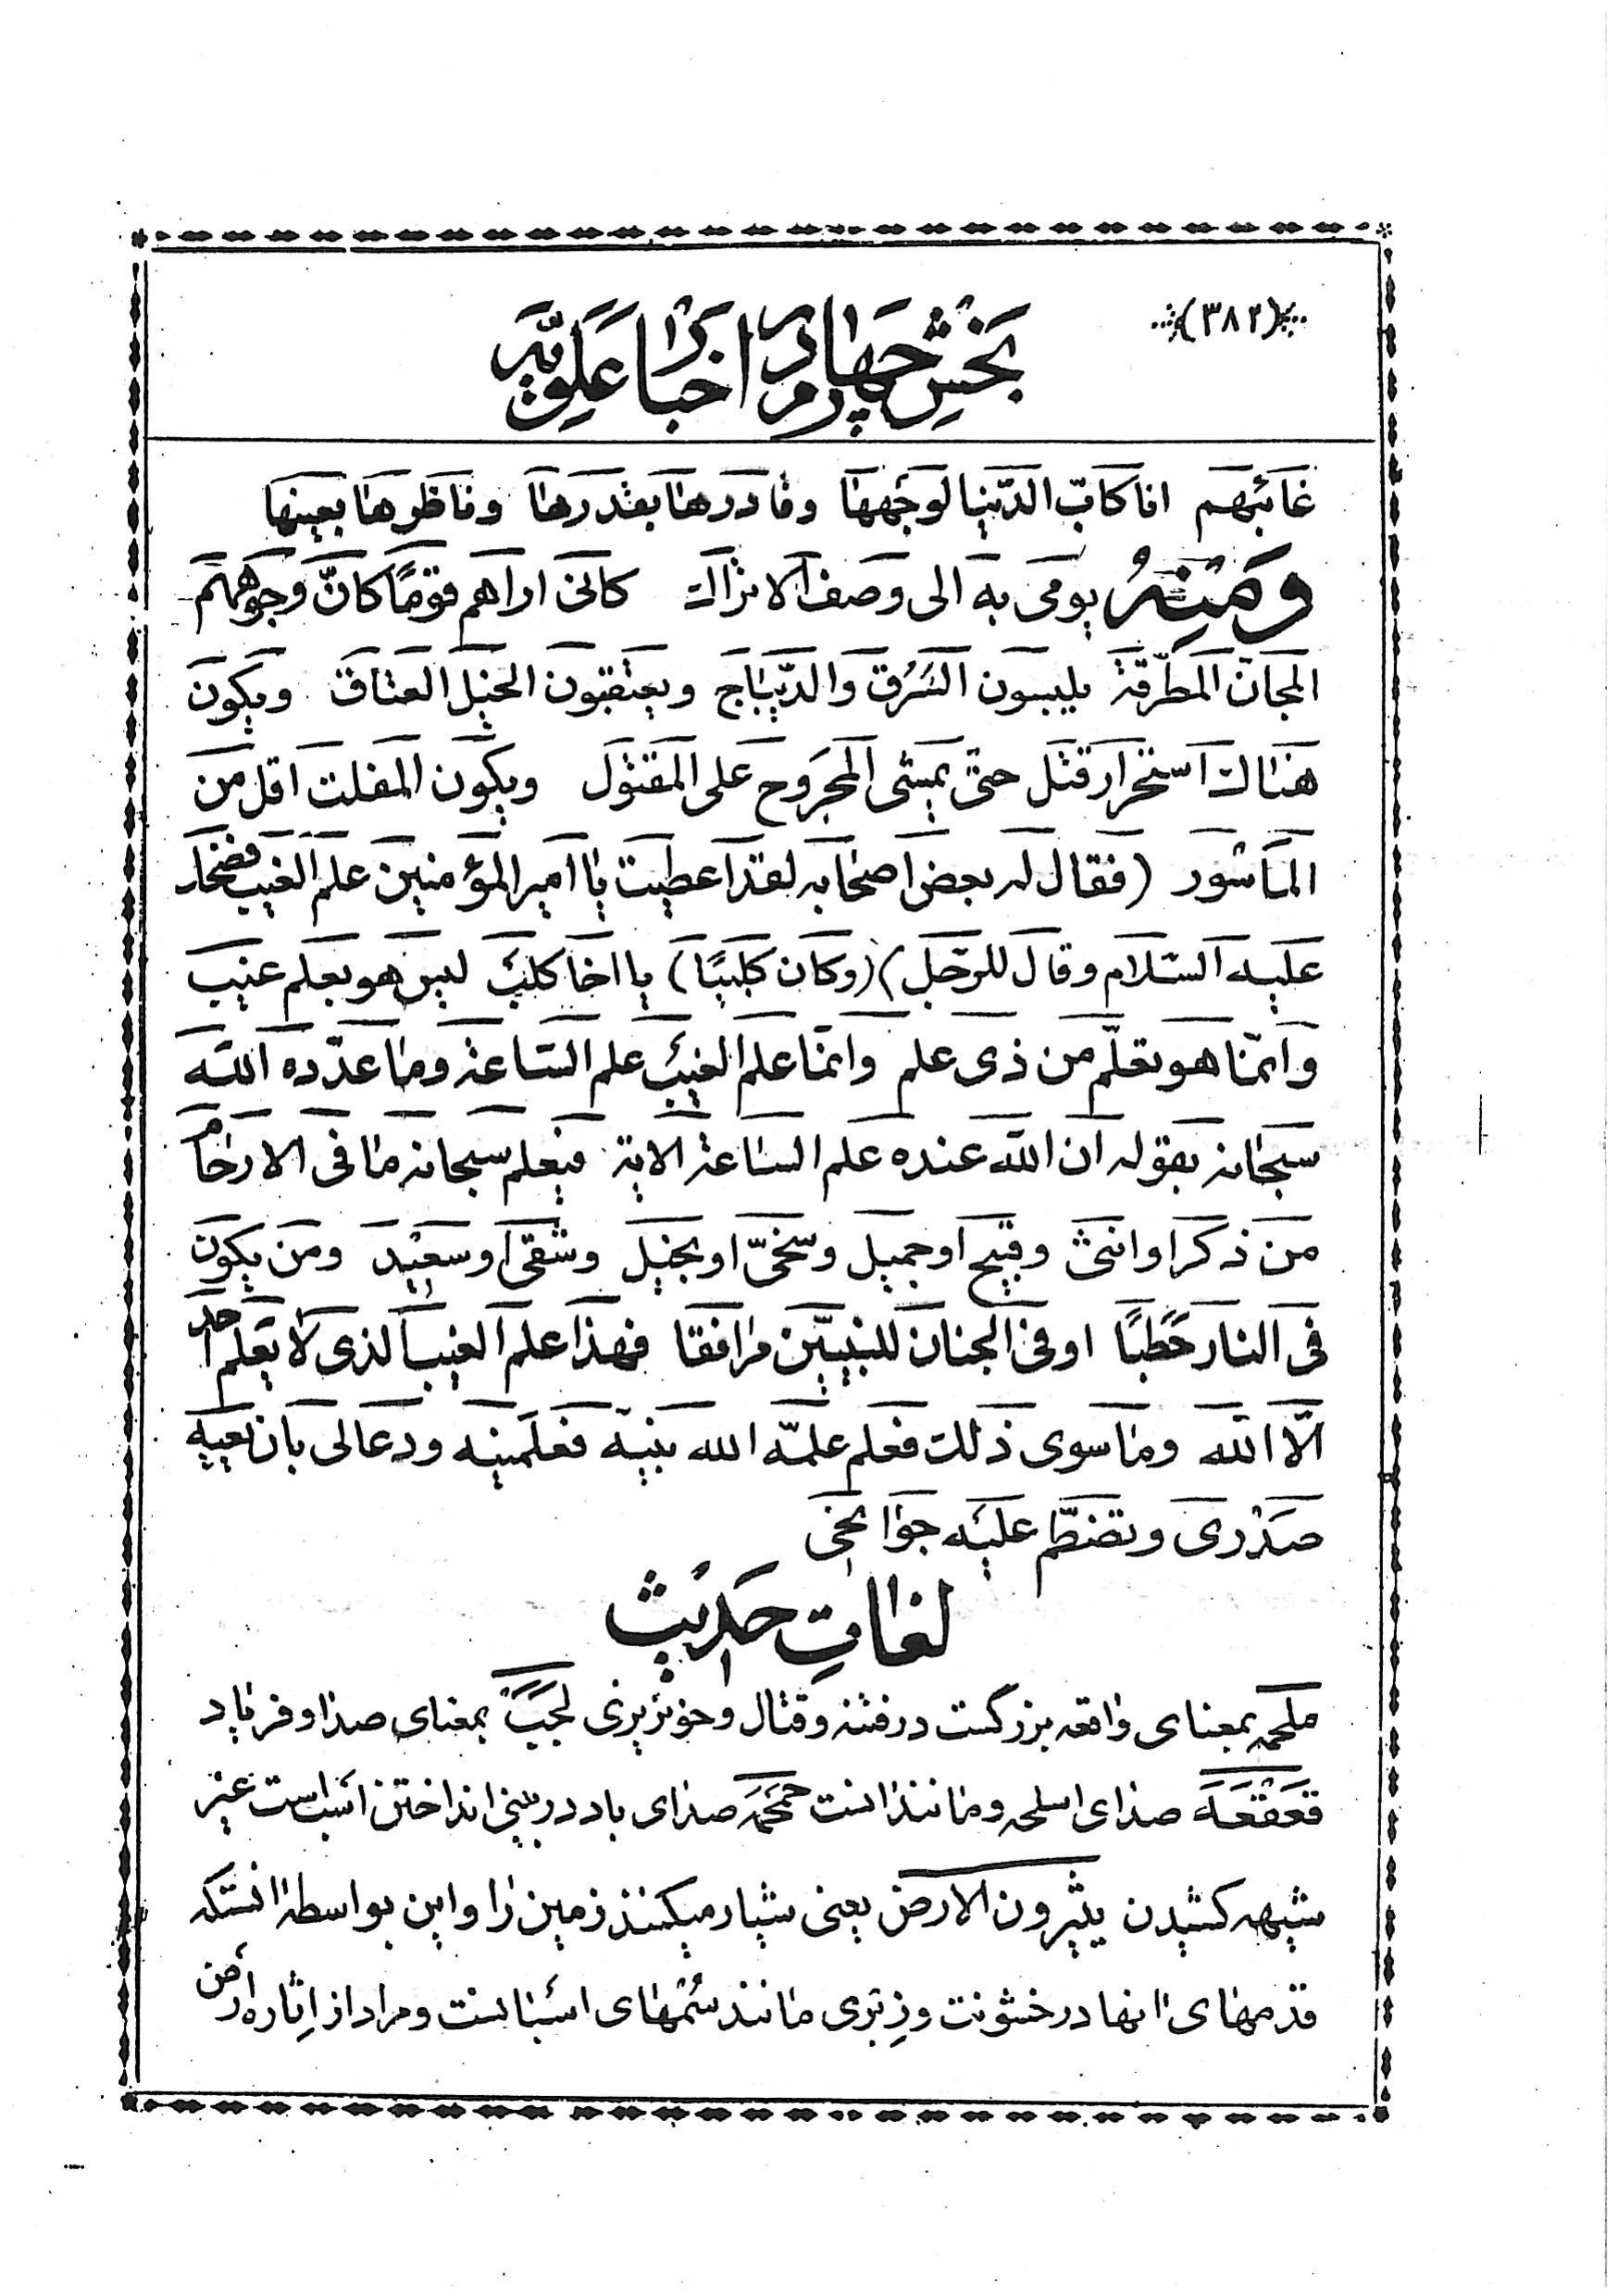 (٣٨٢)
بخش چهارم اخبار علویه
غائبهم انا کابّ الدّنیا لوجهها وقادرها بقدرها وناظرها بعینها
ومنه یومی به الی وصف الاتراک کانی اراهم قومًا کانّ وجوههم
المجان المطرّقة یلبسون السَرَق والدّیباج ویعتقبون الخیل العتاق ویکون
هناک استحرار قتل حتی یمشی المجروح علی المقتول ویکون المفلت اقل من
المأسور (فقال له بعض اصحابه لقد اعطیت یا امیر المؤمنین علم الغیب فضحک
علیه السّلام وقال للرّجل) (وکان کلبیًا) یا اخا کلب لیس هو بعلم غیب
وانّما هو تعلّم من ذی علم وانّما علم الغیب علم السّاعة وما عدّده الله
سبحانه بقوله ان الله عنده علم الساعة الایة فیعلم سبحانه ما فی الارحام
من ذکر او انثی وقبیح او جمیل وسخیّ او بخیل وشقی او سعید ومن یکون
فی النار حَطَبًا او فی الجنان للنبیّین مرافقا فهذا علم الغیب الذی لا یعلم احد
الّا الله وما سوی ذلک فعلم علمّه الله نبیّه فعلّمنیه ودعا لی بان یعیه
صدری وتضطّم علیه جوانحی
لغات حدیث
ملحمه بمعنای واقعه بزرگست در فتنه و قتال و خونریزی لَجَب بمعنای صدا و فریاد
قَعقَعَه صدای اسلحه و مانند انست حمحمه صدای باد در بینی انداختن اسب است غیر
شیهه کشیدن یثیرون الارض یعنی شیار میکنند زمین را و این بواسطه انستکه
قدمهای انها در خشونت و زِبَری مانند سُمّهای اسبانست و مراد از اِثاره ارض